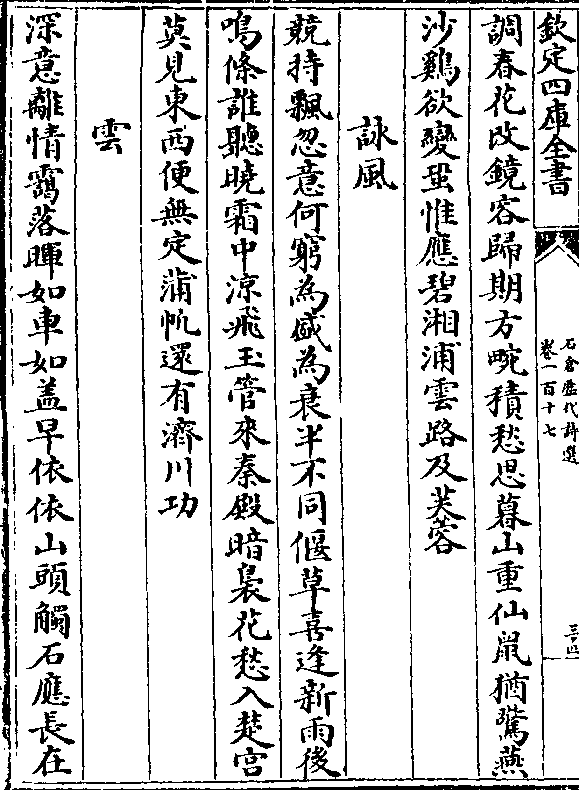 欽定四庫全書
石倉歷代詩選
卷一百十七
調春花改鏡容歸期方畹積愁思暮山重仙鼠猶驚燕
沙鷄欲變蛩惟應碧湘浦雲路及芙蓉
詠風
競持飄忽意何窮為盛為衰半不同偃草喜逢新雨後
鳴條誰聽曉霜中涼飛玉管來秦殿暗裊花愁入楚宮
莫見東西便無定蒲帆還有濟川功
雲
深意離情靄落暉如車如蓋早依依山頭觸石應長在